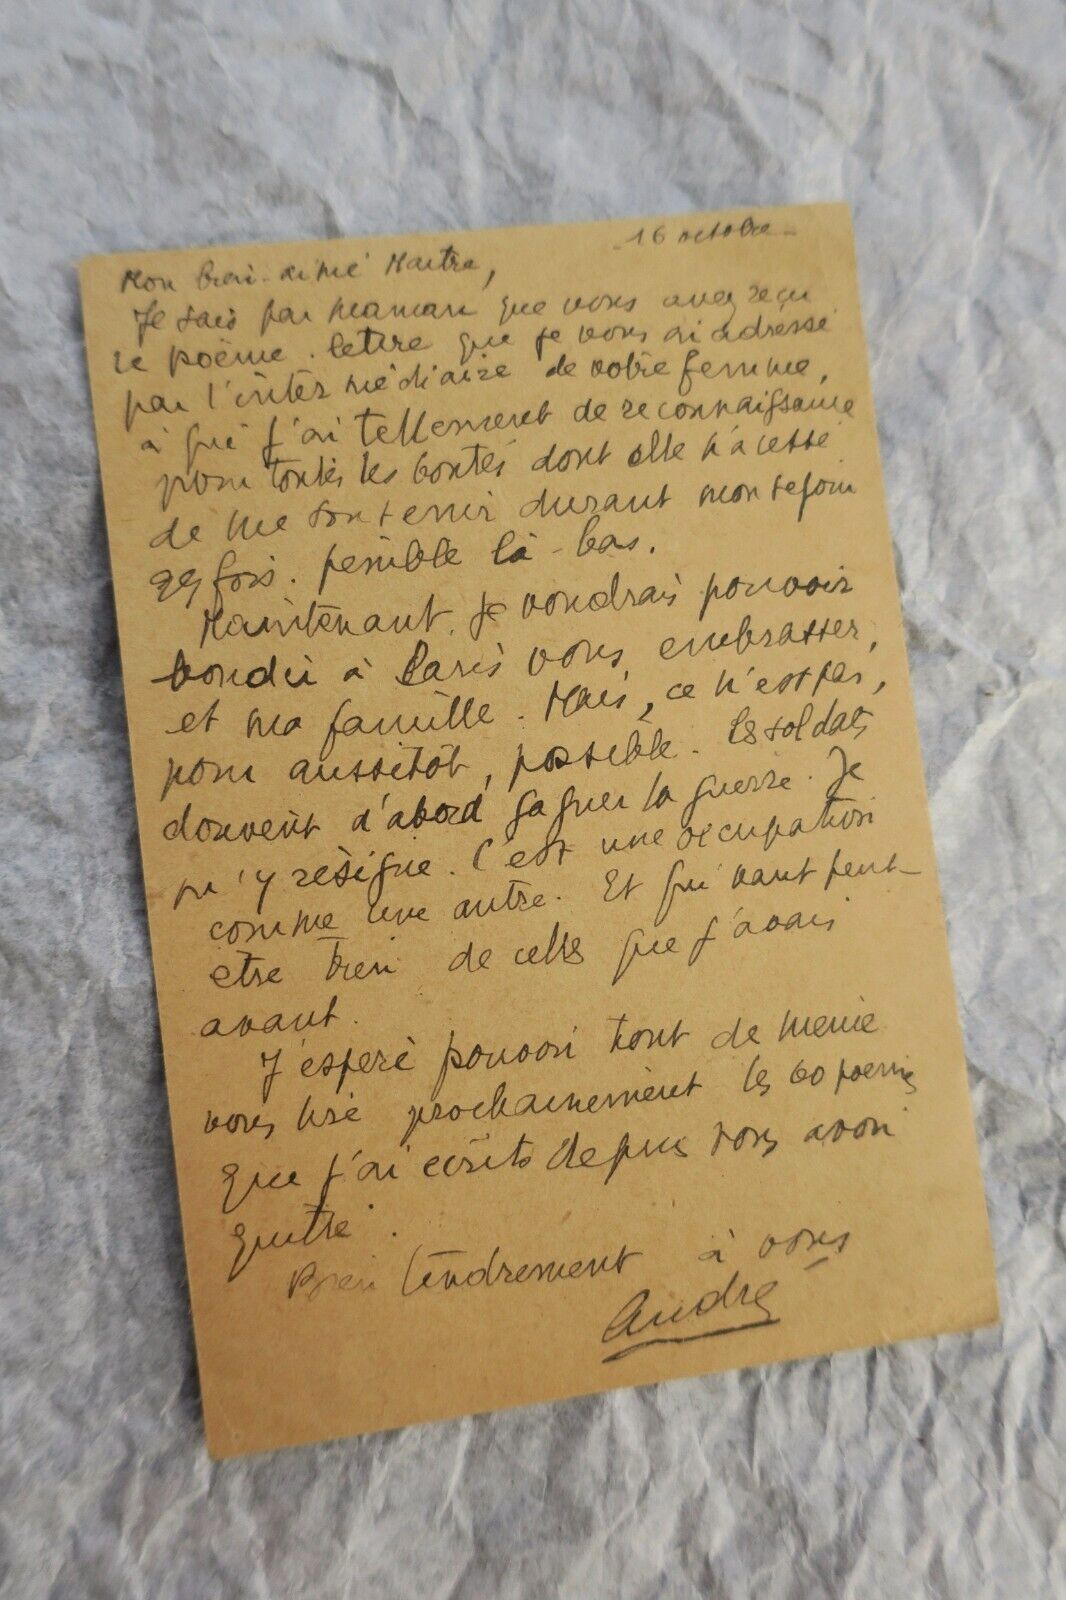 16 octobre
Mon bien-aimé Maître,
Je sais par maman que vous avez reçu
le poème-lettre que je vous ai adressé
par l'intermédiaire de votre femme,
à qui j'ai tellement de reconnaissance
pour toutes les bontés dont elle n'a cessé
de me soutenir durant mon séjour
qq fois pénible là-bas.
Maintenant, je voudrais pouvoir
à Paris vous embrasser,
et ma famille. Mais, ce n'est pas,
pour aussitôt, possible. Les soldats
doivent d'abord gagner la guerre. Je
m'y résigne. C'est une occupation
comme une autre. Et qui vaut peut-
être bien de celles que j'avais
avant.
J'espère pouvoir tout de même
vous lire prochainement les 60 poèmes
que j'ai écrits depuis vous avoir
quitté.
Bien tendrement à vous
André